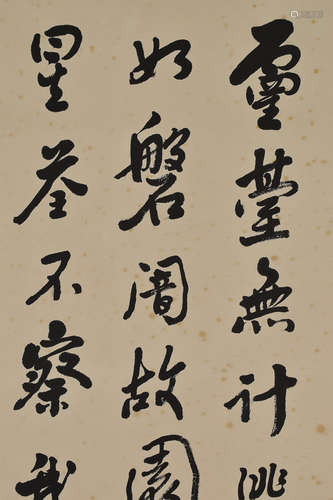 靈臺無計逃
如磐闇故園
星荃不察我